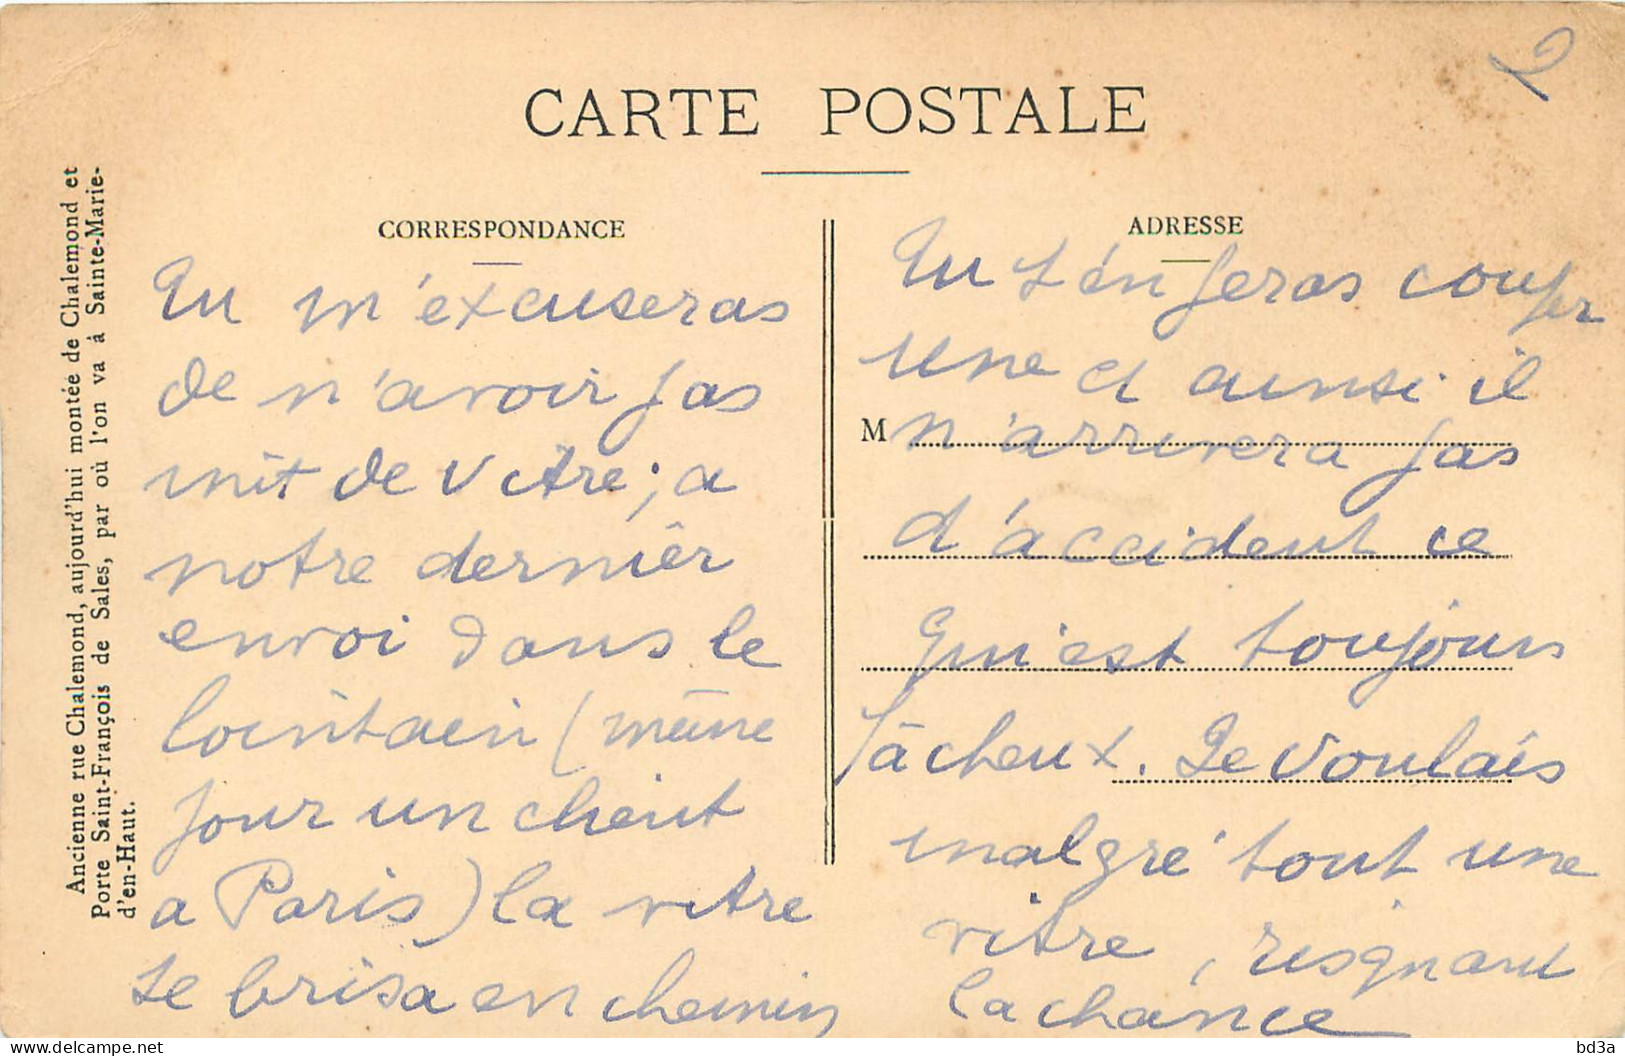 2
CARTE POSTALE
CORRESPONDANCE
ADRESSE
Ancienne rue Chalemond, aujourd'hui montée de Chalemond et
Porte Saint-François de Sales, par où l'on va à Sainte-Marie-
d'en-Haut.
Tu m'excuseras
de n'avoir pas
mît de vitre ; a
notre derniêr
envoi dans le
lointain (même
pour un client
a Paris) la vitre
se brisa en chemin
Tu t'én feras couper
une et ainsi il
M n'arrivera pas
d'accident ce
qui est toujours
fâcheux. Je voulais
malgré tout une
vitre, risquant
la chance
bd3a